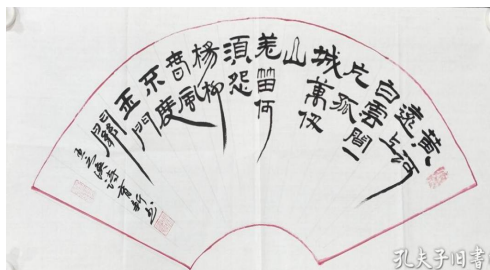 黃河
遠上
白雲間一
片孤
城萬仞
山
羌笛何
須怨
楊柳
春風
不度
玉門
關
王之渙詩
孔夫子旧書